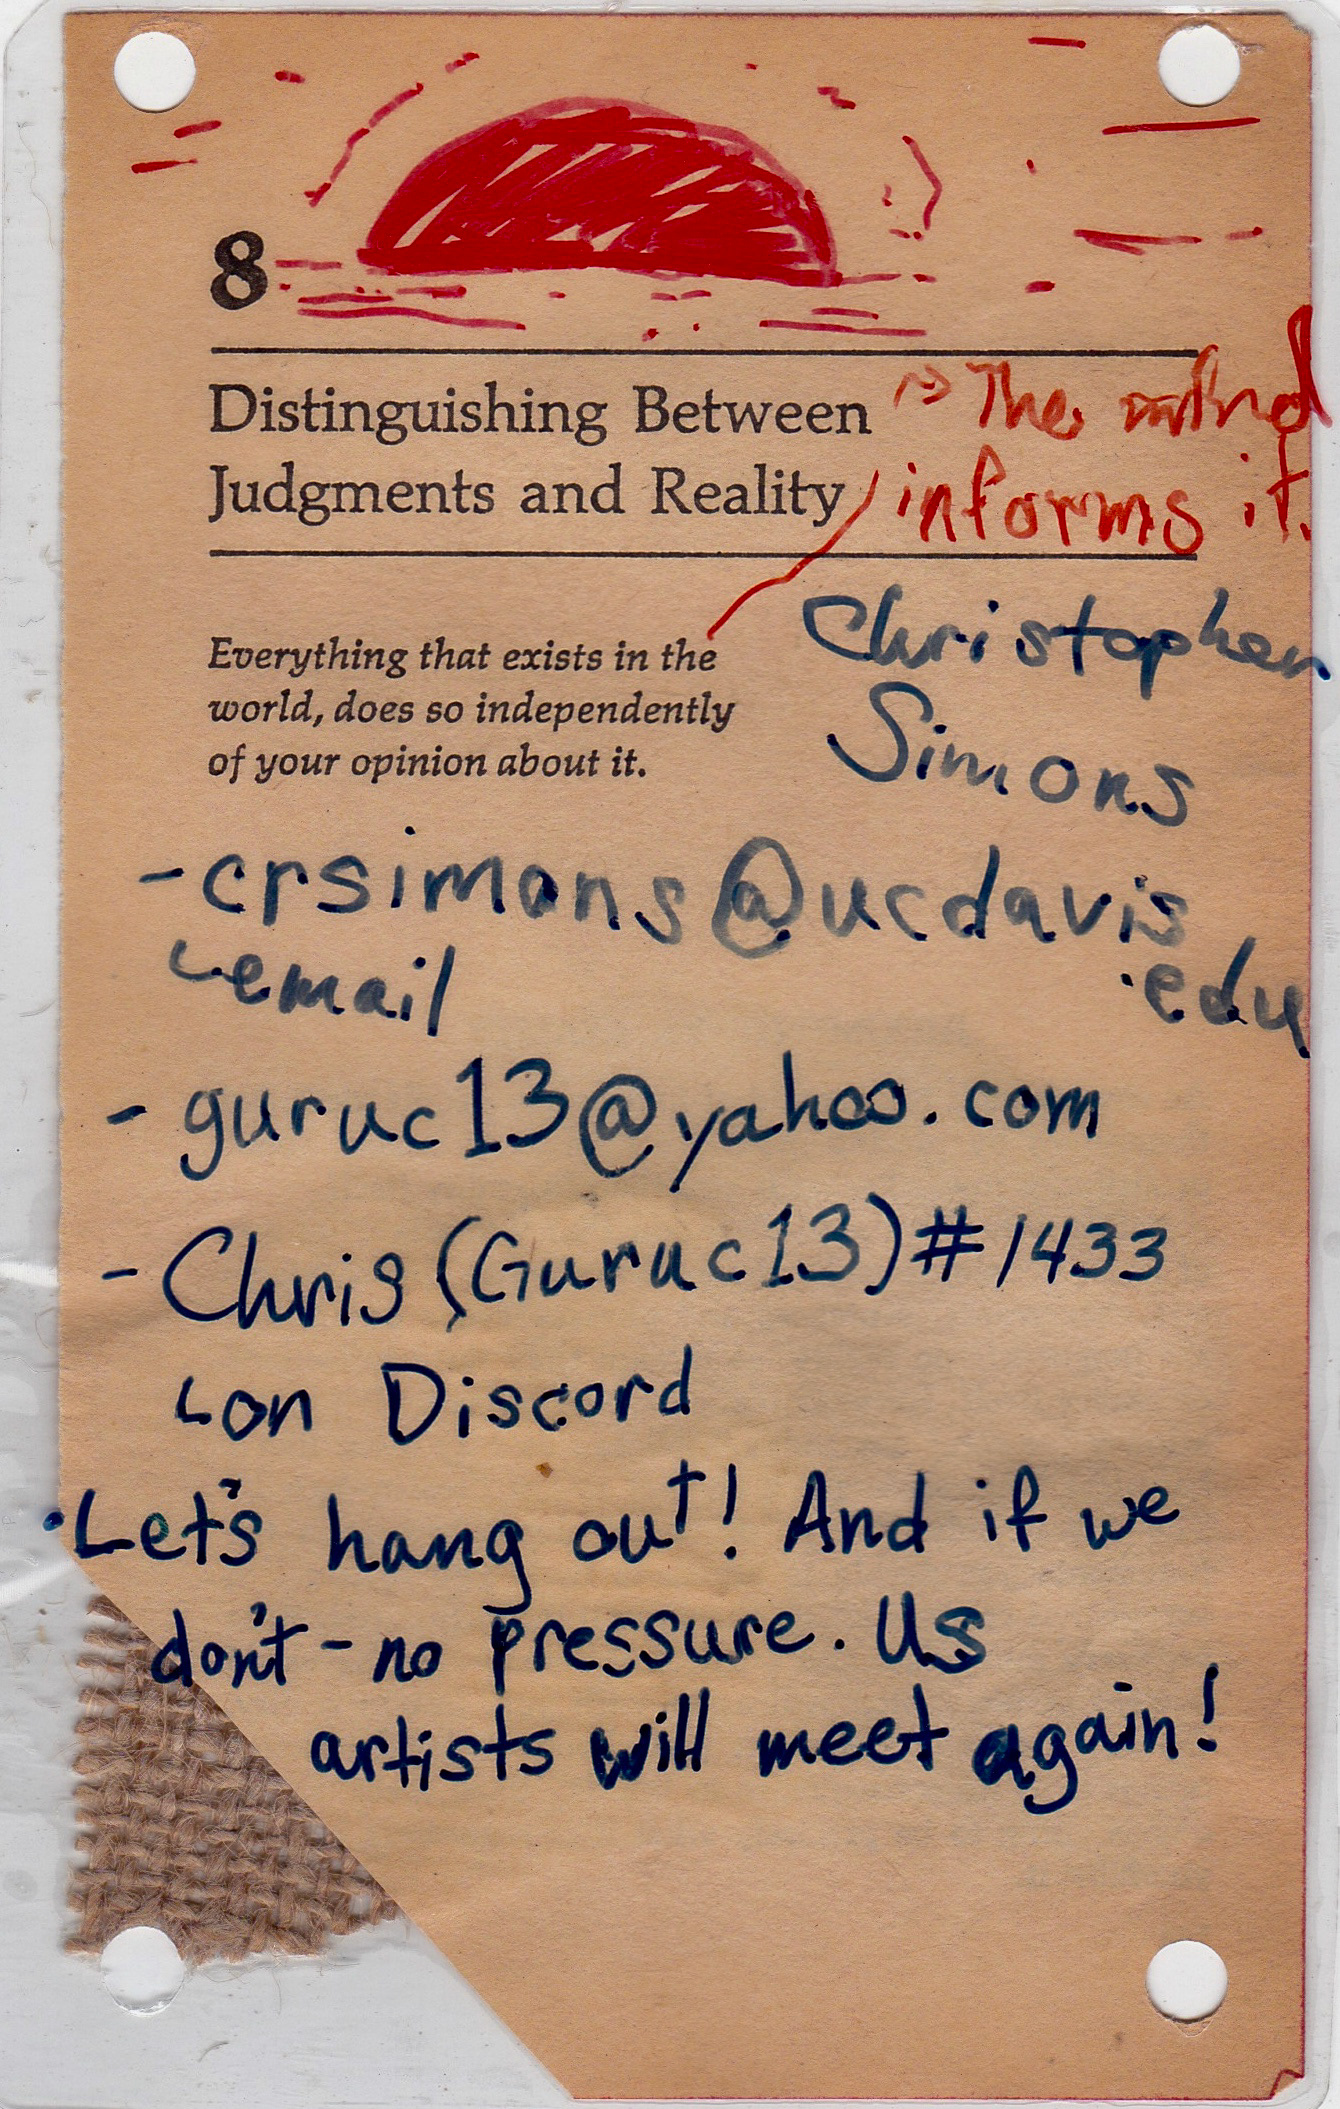 8
Distinguishing Between
Judgments and Reality
→ The mind
informs it.
Everything that exists in the
world, does so independently
of your opinion about it.
Christopher
Simons
- crsimons@ucdavis
.edu
email
- guruc13@yahoo.com
- Chris (Guruc13)#1433
on Discord
·Let's hang out! And if we
don't - no pressure. Us
artists will meet again!